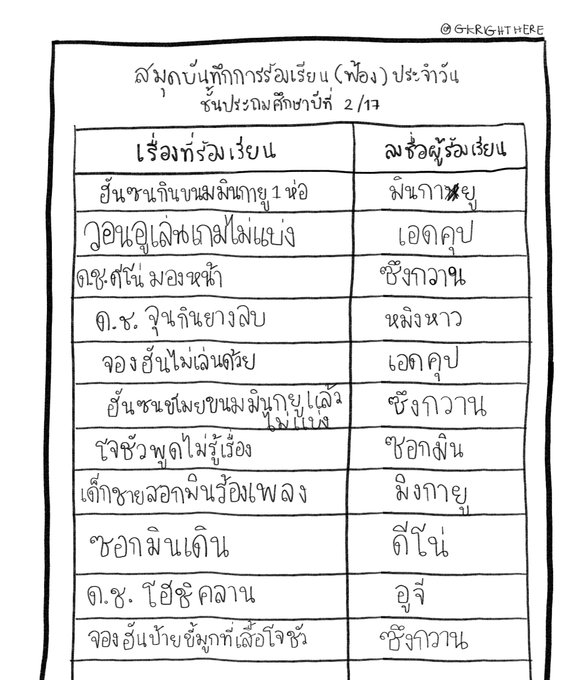 @GKRIGHTHERE
สมุดบันทึกการร้องเรียน (ฟ้อง) ประจำวัน
ชั้นประถมศึกษาปีที่ 2/17
เรื่องที่ร้องเรียน ลงชื่อผู้ร้องเรียน
ฮันซนกินขนมมินกายู 1 ห่อ มินกายู
วอนอูเล่นเกมไม่แบ่ง เอดคุป
ด.ช.ดีโน่ มองหน้า ซึงกวาน
ด.ช. จุนกินยางลบ หมิงหาว
จองฮันไม่เล่นด้วย เอดคุป
ฮันซนขโมยขนมมินกยูแล้ว ซึงกวาน
ไม่แบ่ง
โจชัวพูดไม่รู้เรื่อง ซอกมิน
เด็กชายสอกมินร้องเพลง มิงกายู
ซอกมินเดิน ดีโน่
ด.ช. โฮชิคลาน อูจี
จองฮันป้ายขี้มูกที่เสื้อโจชัว ซึงกวาน